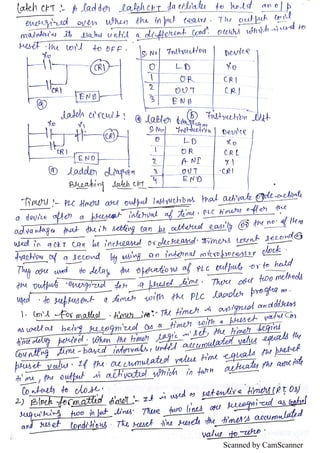 Latch CKT :- A ladder latch CKT facilitates to hold an o/p
energized even when the input ceases. The output coil
maintains its status until a different cond. occurs which is used to
reset the coil to OFF.
S.No Instruction Device
0 LD X0
1 OR CR1
2 OUT CR1
3 END
X0
CR1
CR1
END
(a)
Latch circuit:
(a) Ladder diagram
(b) Instruction list
X0 X1
CR1
CR1
END
S.No Instruction Device
0 LD X0
1 OR CR1
2 ANI X1
3 OUT CR1
4 END
(a) Ladder diagram
Breaking latch CKT
Timers :- PLC timers are output instructions that activate or de-activate
a device after a preset interval of time. PLC timers offer the
advantage that their setting can be altered easily or the no. of them
used in a CKT can be increased or decreased. Timers count seconds or
fraction of a second by using an internal microprocessor clock.
They are used to delay the operations of PLC outputs or to hold
the output energized for a preset time. There are two methods
used to represent a timer with the PLC ladder program.
1. Coil-Formatted timer :- The timer is assigned an address
as well as being recognized as a timer with a preset value or
time delay period. When the timer logic is set, the timer begins
counting time-based intervals, until accumulated value equals the
preset value. If the accumulated value time equals the preset
time, the output is activated which in turn actuates the associate
contacts to close.
2) Block formatted timer :- It is used as retentive timers (RTOs)
requiring two input lines. These two lines are recognized as control
and reset conditions. The reset line resets the timer's accumulated
value to zero.
Scanned by CamScanner